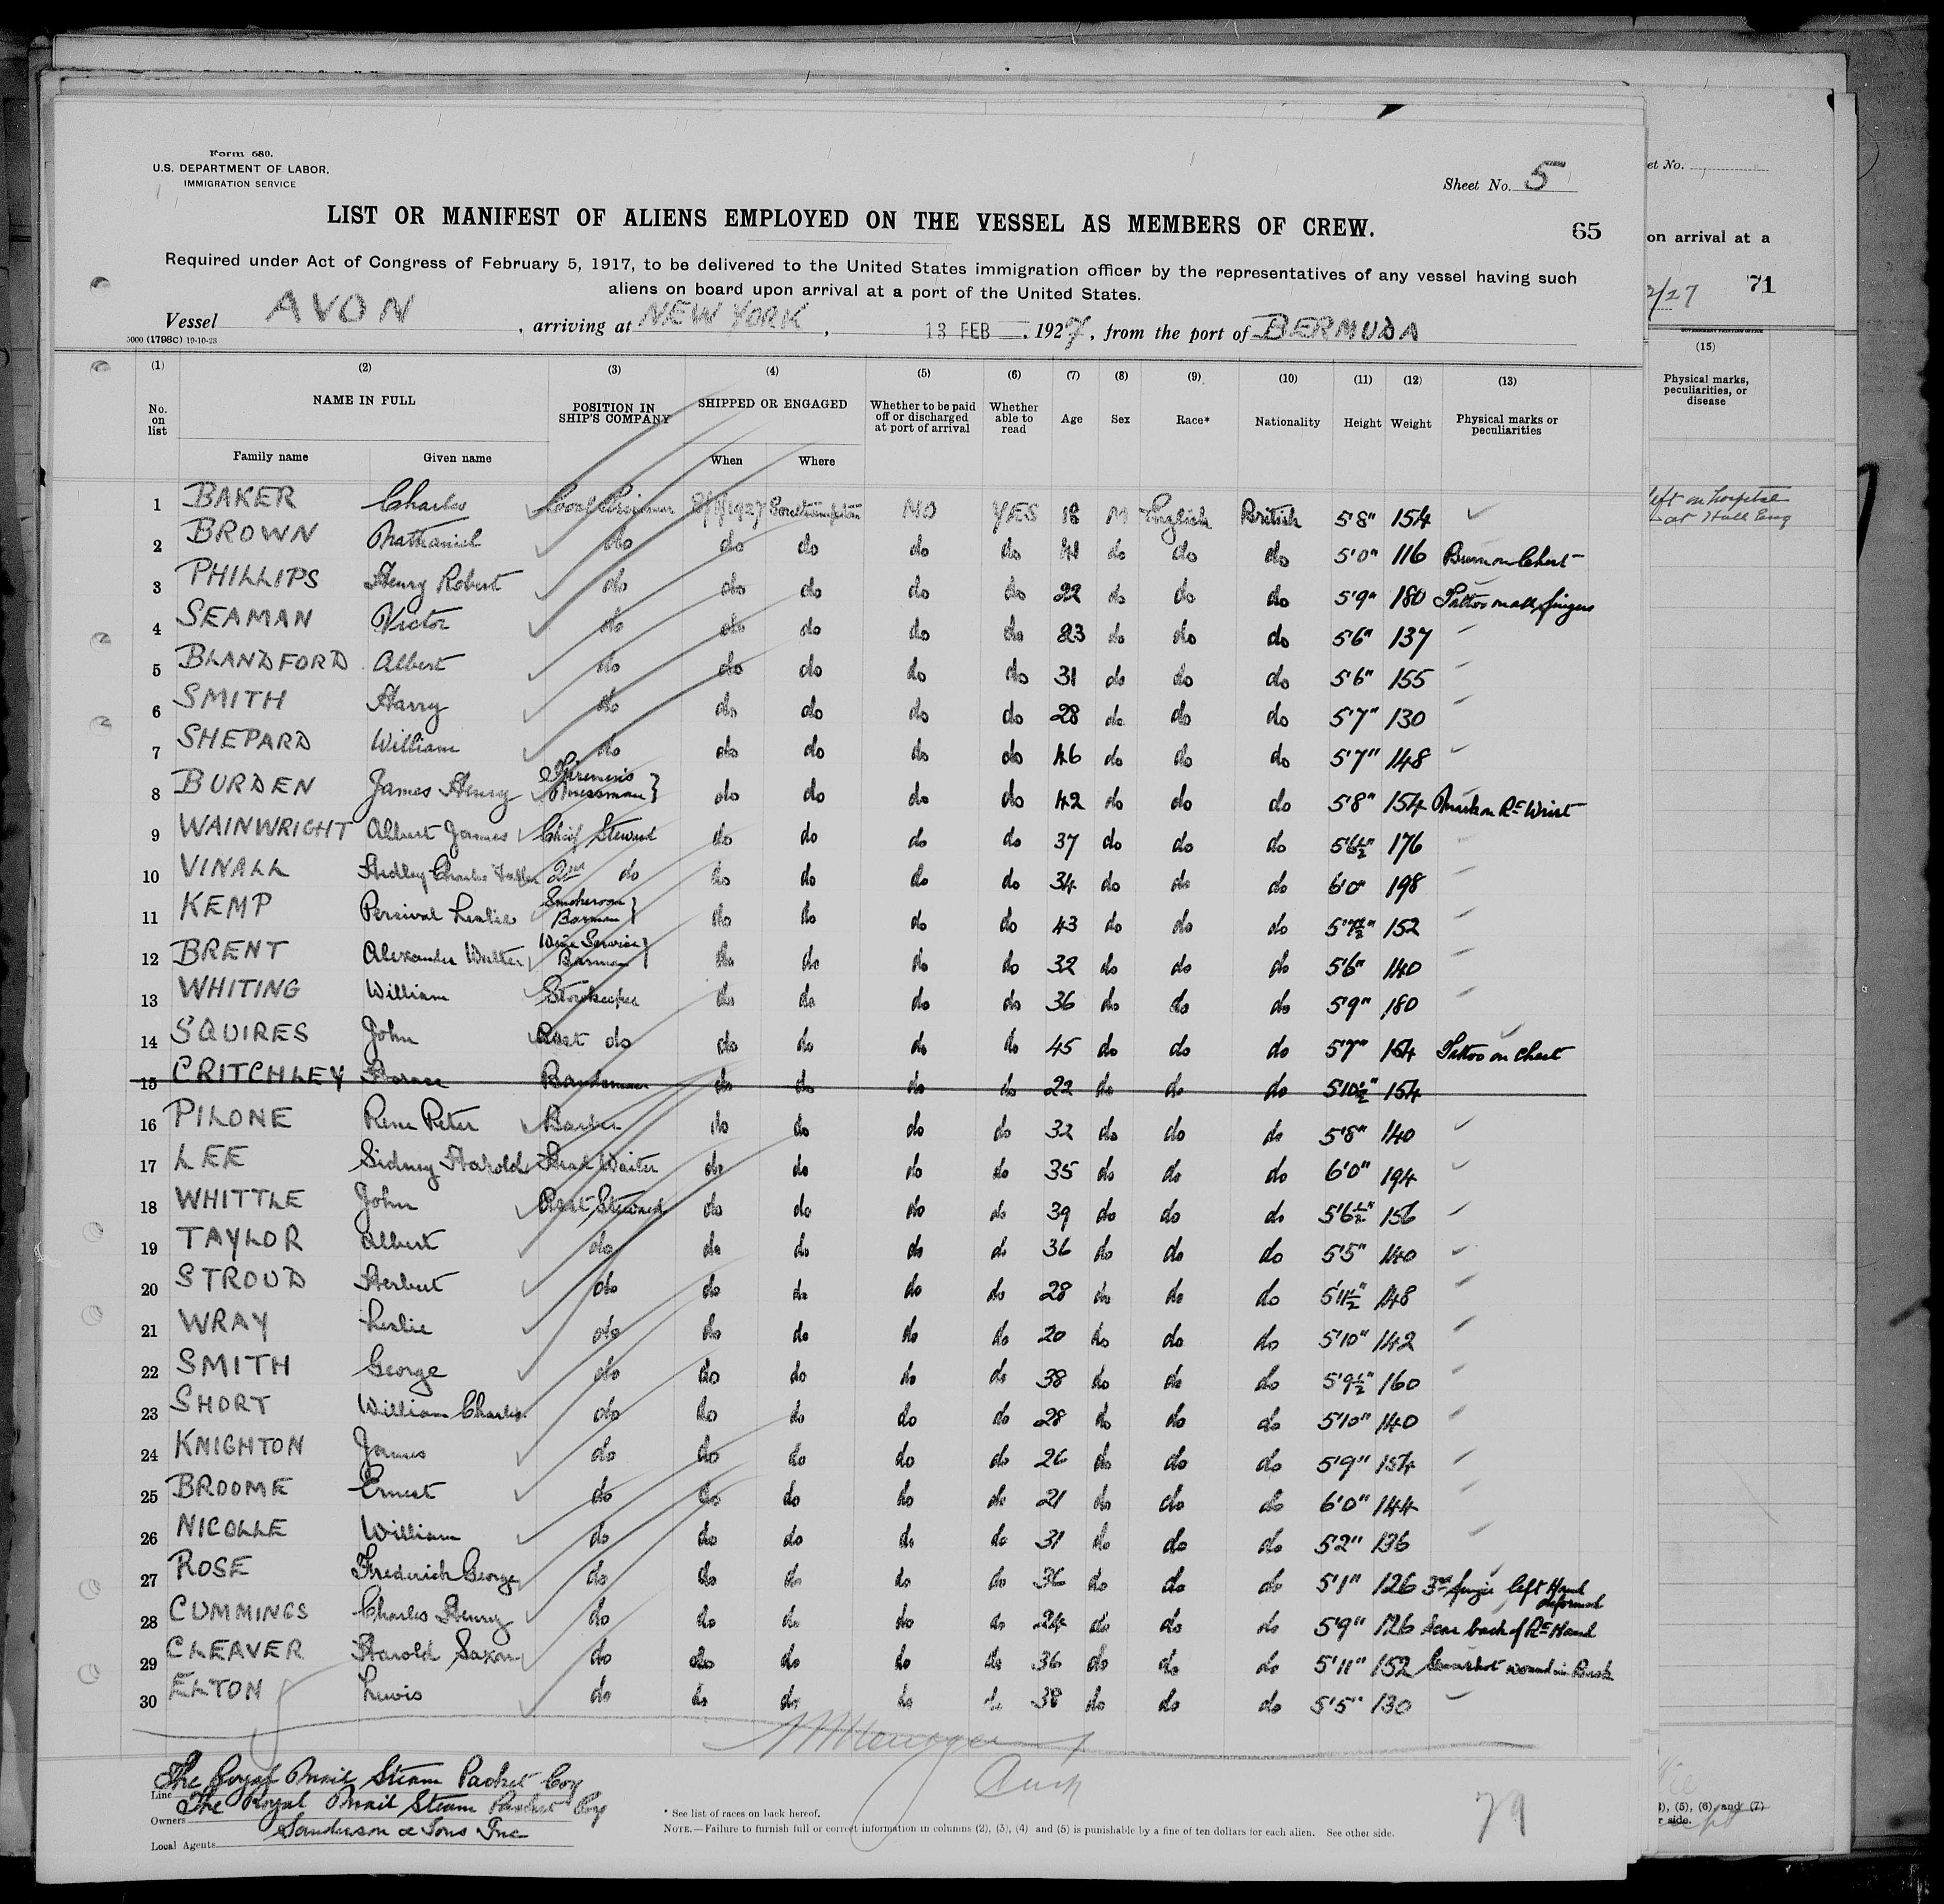 Form 680.
U.S. DEPARTMENT OF LABOR.
IMMIGRATION SERVICE
Sheet No. 5
LIST OR MANIFEST OF ALIENS EMPLOYED ON THE VESSEL AS MEMBERS OF CREW.
65
Required under Act of Congress of February 5, 1917, to be delivered to the United States immigration officer by the representatives of any vessel having such
aliens on board upon arrival at a port of the United States.
Vessel AVON, arriving at NEW YORK, 13 FEB. 1927, from the port of BERMUDA
5000 (1798C) 19-10-23
(1) (2) (3) (4) (5) (6) (7) (8) (9) (10) (11) (12) (13)
No. on list NAME IN FULL Family name Given name POSITION IN SHIP'S COMPANY SHIPPED OR ENGAGED When Where Whether to be paid off or discharged at port of arrival Whether able to read Age Sex Race* Nationality Height Weight Physical marks or peculiarities
1 BAKER Charles 1927 Southampton NO YES 18 M English British 5'8" 154
2 BROWN Nathaniel do do do do do 41 do do do 5'0" 116 Burn on Chest
3 PHILLIPS Henry Robert do do do do do 22 do do do 5'9" 180 Tattoo on all fingers
4 SEAMAN Victor do do do do do 23 do do do 5'6" 137
5 BLANDFORD Albert do do do do do 31 do do do 5'6" 155
6 SMITH Harry do do do do do 28 do do do 5'7" 130
7 SHEPARD William do do do do do 46 do do do 5'7" 148
8 BURDEN James Henry Firemen's Messman do do do do 42 do do do 5'8" 154 Mark on Rt Wrist
9 WAINWRIGHT Albert James Chief Steward do do do do 37 do do do 5'6½" 176
10 VINALL Hedley Charles 2nd do do do do do 34 do do do 6'0" 198
11 KEMP Percival Leslie Smokeroom Barman do do do do 43 do do do 5'7½" 152
12 BRENT Alexander Walter Wine Service Barman do do do do 32 do do do 5'6" 140
13 WHITING William Storekeeper do do do do 36 do do do 5'9" 180
14 SQUIRES John Asst do do do do do 45 do do do 5'7" 164 Tattoo on Chest
15 CRITCHLEY Horace Bandsman do do do do 22 do do do 5'10½" 154
16 PILONE Rene Peter Barber do do do do 32 do do do 5'8" 140
17 LEE Sidney Harold Head Waiter do do do do 35 do do do 6'0" 194
18 WHITTLE John Asst Steward do do do do 39 do do do 5'6½" 156
19 TAYLOR Albert do do do do do 36 do do do 5'5" 140
20 STROUD Herbert do do do do do 28 do do do 5'11½" 148
21 WRAY Leslie do do do do do 20 do do do 5'10" 142
22 SMITH George do do do do do 38 do do do 5'9½" 160
23 SHORT William Charles do do do do do 28 do do do 5'10" 140
24 KNIGHTON James do do do do do 26 do do do 5'9" 154
25 BROOME Ernest do do do do do 21 do do do 6'0" 144
26 NICOLLE William do do do do do 31 do do do 5'2" 136
27 ROSE Frederick George do do do do do 36 do do do 5'1" 126 3rd finger left Hand deformed
28 CUMMINGS Charles Henry do do do do do 24 do do do 5'9" 126 Scar back of Rt Hand
29 CLEAVER Harold Saxon do do do do do 36 do do do 5'11" 152 Gunshot wound in Back
30 ELTON Lewis do do do do do 38 do do do 5'5" 130
Line The Royal Mail Steam Packet Coy
Owners The Royal Mail Steam Packet Coy
Local Agents Sanderson & Sons Inc
* See list of races on back hereof.
NOTE.—Failure to furnish full or correct information in columns (2), (3), (4) and (5) is punishable by a fine of ten dollars for each alien. See other side.
79
et No.
on arrival at a
2/27 71
(15)
Physical marks,
peculiarities, or
disease
left in hospital
at Hull Eng
(5), (6), and (7)
r side.